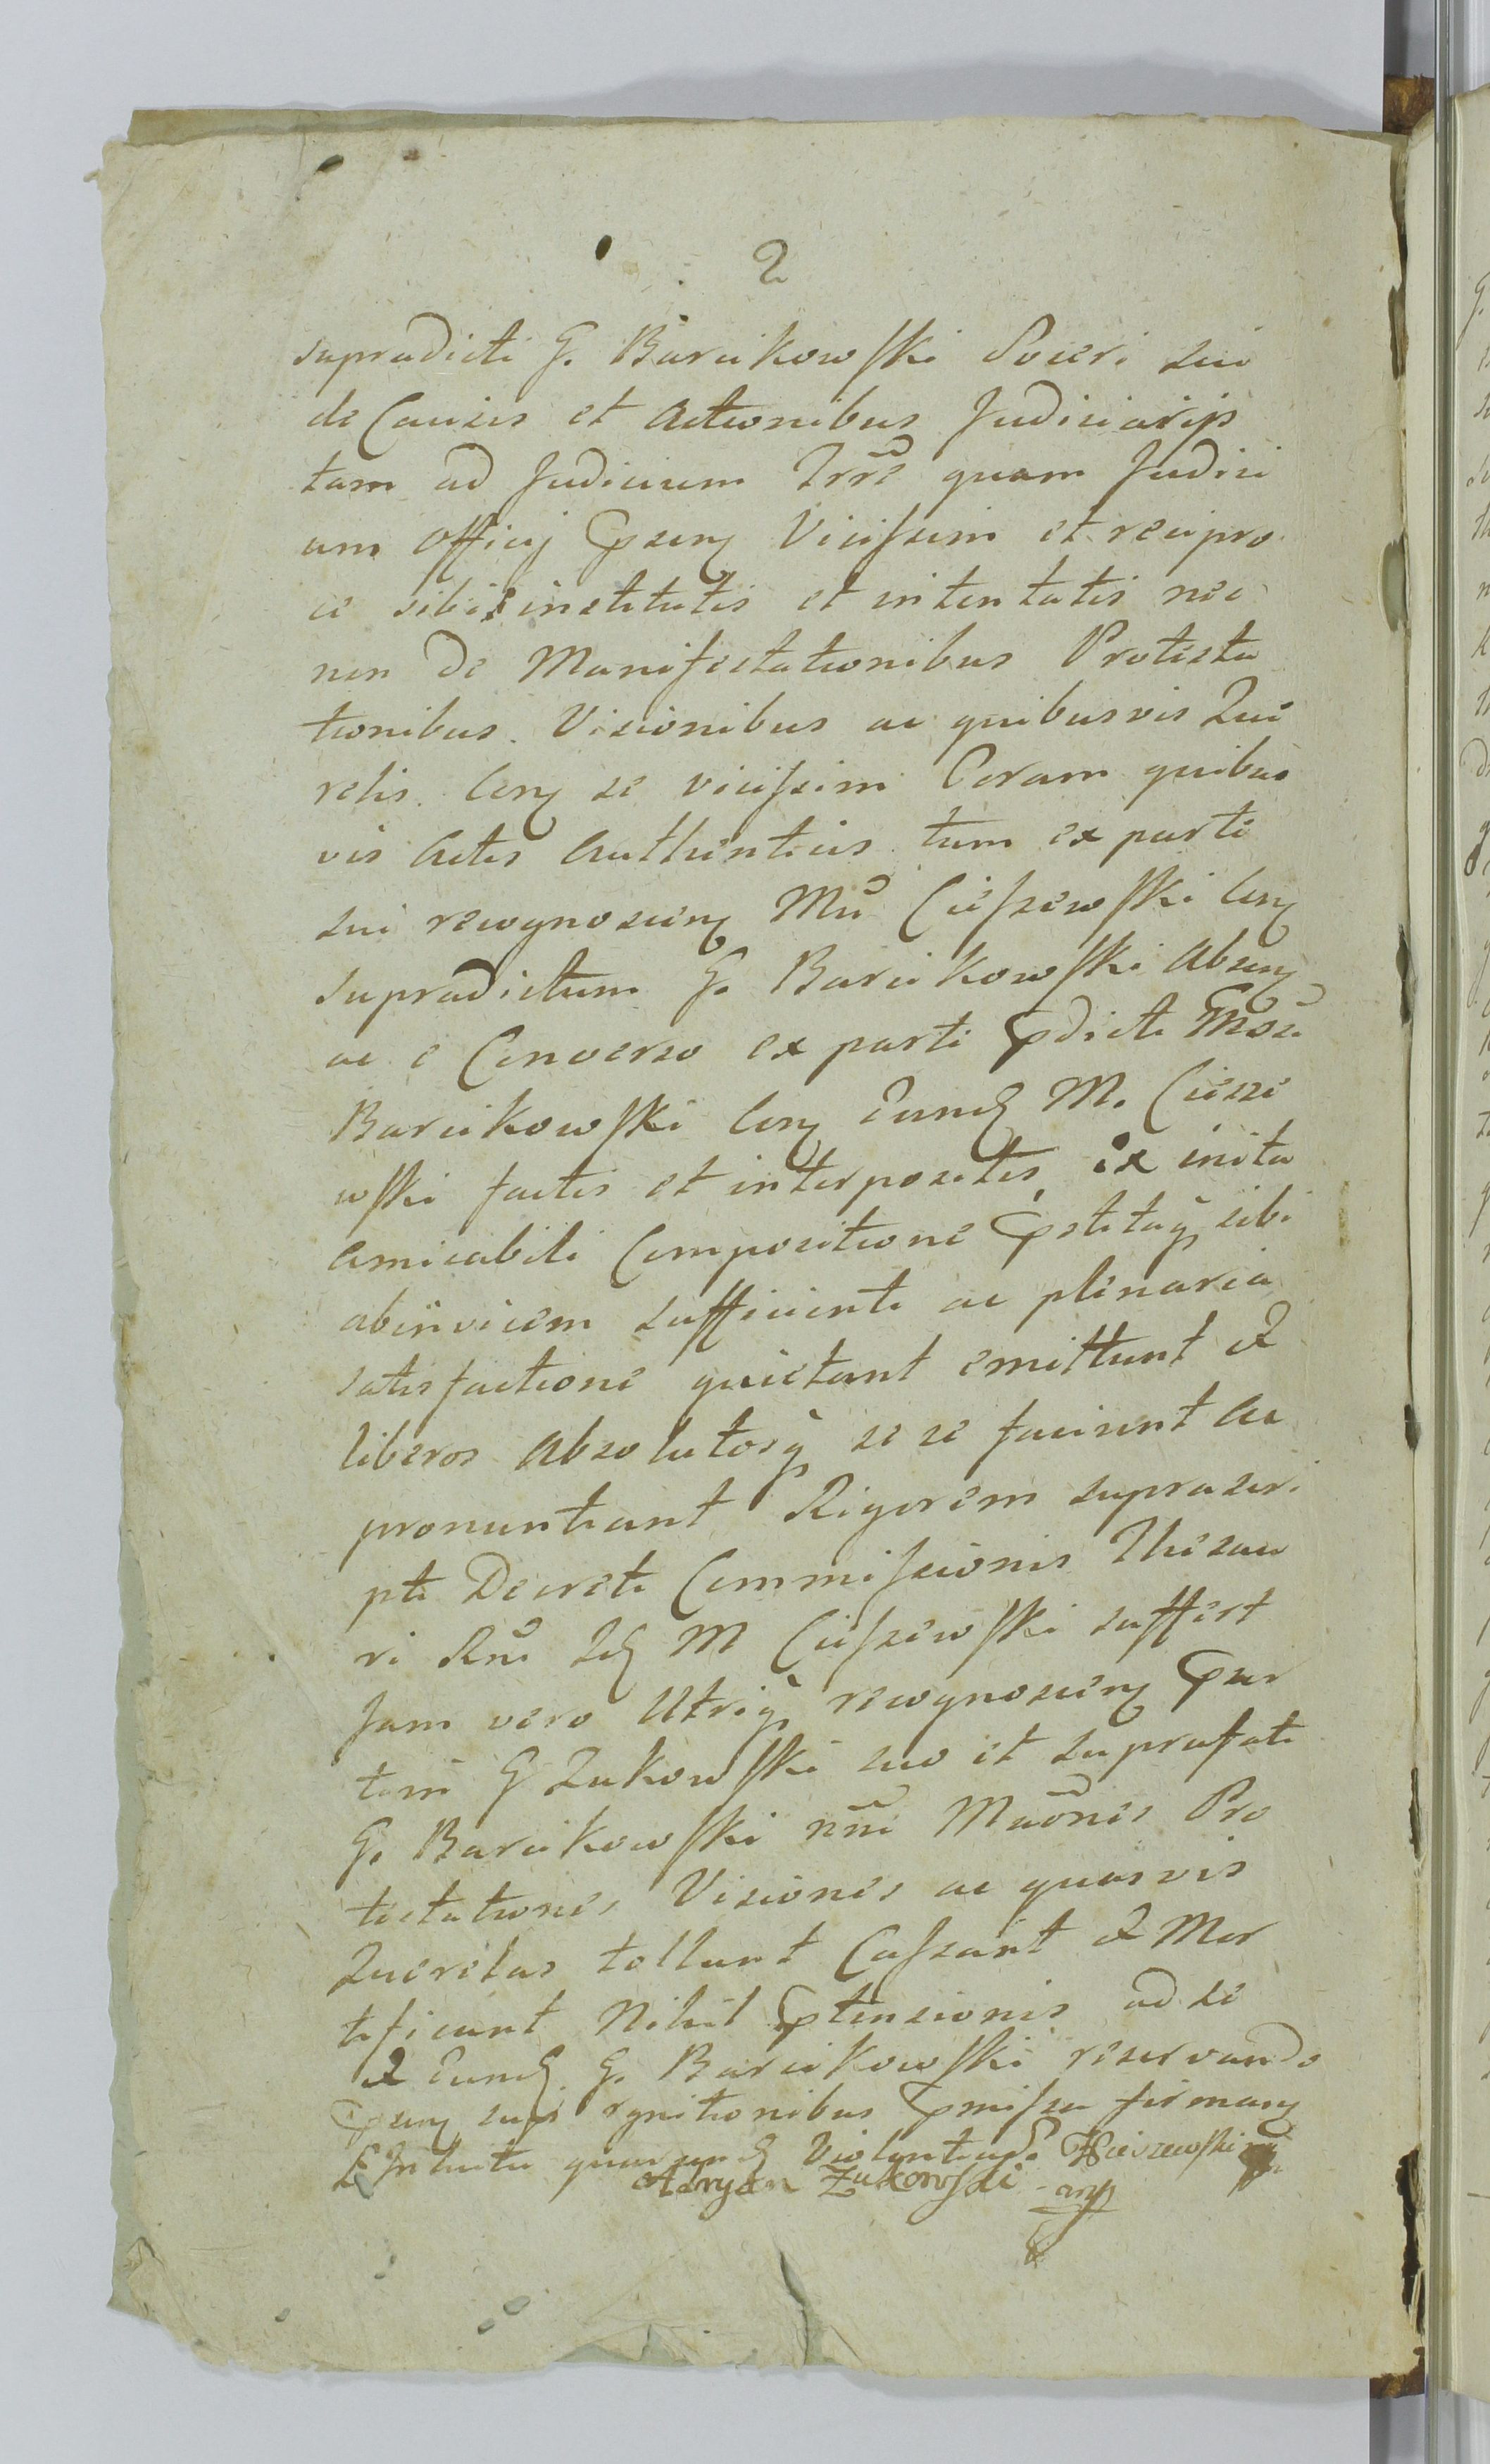 2
supradicti G. Barcikowski Soceri sui
de Causis et Actionibus Judiciarijs
tam ad Judicium Trrē quam Judici
um Officij pseng Vicissim et recipro
ce sibi institutis et intentatis nec
non de Manifestationibus Protesta
tionibus Visionibus ac quibusvis Que
relis Cong se vicissim Coram quibus
vis Actis Authenticis tum ex parte
sui recognosceng Mci Cieszewski Cong
supradictum G. Barcikowski Abseng
ac e Converso ex parte pdicti Gnosi
Barcikowski Cong eund M. Ciesze
wski factis et interpositis ex inita
amicabili Compositione pstitaq sibi
abinvicem sufficienti ac plenaria
satisfactione quietant emittunt et
liberos Absolutosq se se faciunt ac
pronuntiant Rigorem suprascri
pti Decreti Commissionis Thesau
ri Rni Id M Cieszewski suffert
Jam vero Utriq recognosceng par
tem G Zukowski suo et suprafati
G. Barcikowski nñe Mãones Pro
testationes Visiones ac quasvis
Querelas tollunt Cassant et Mor
tificant Nihil ptensionis ad se
et eund G. Barcikowski reservando
pseng suis rgnitionibus pmissa firmang
Intuitu quorum Cieszewski
Adryan Zukowski mp